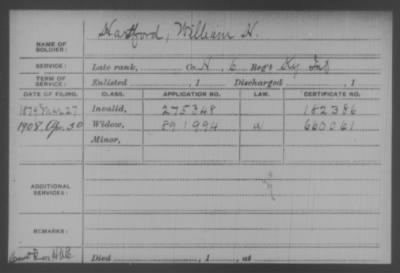 Hartford, William H.
NAME OF SOLDIER:
SERVICE: Late rank, Co. H, 6 Reg't Ky Inf
TERM OF SERVICE: Enlisted , 1 Discharged , 1
DATE OF FILING. CLASS. APPLICATION NO. LAW. CERTIFICATE NO.
1879 Mar 27 Invalid, 275348 182386
1908 Ap. 30 Widow, 891994 660061
Minor,
ADDITIONAL SERVICES:
REMARKS:
Died , 1 , at